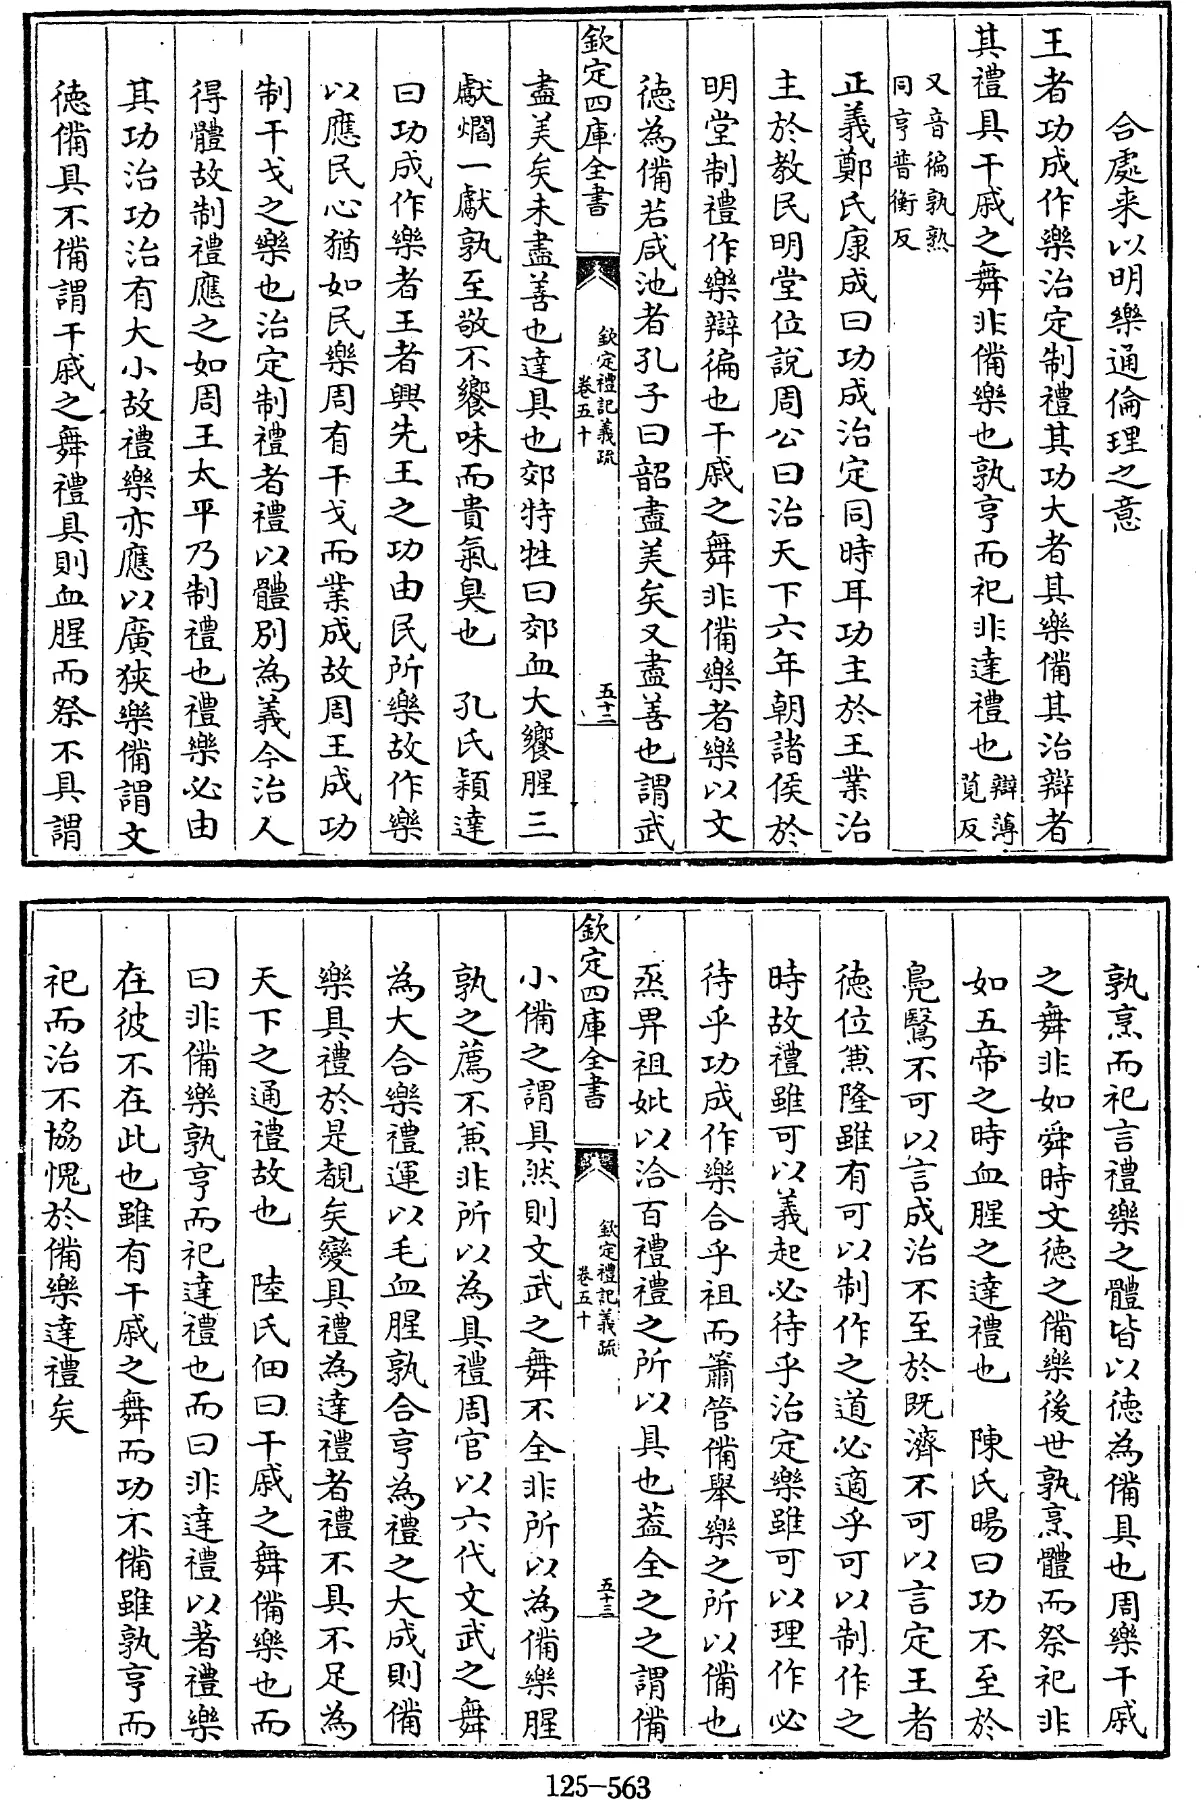 合處来以明樂通倫理之意
王者功成作樂治定制禮其功大者其樂備其治辯者
其禮具干戚之舞非備樂也孰亨而祀非達禮也辯薄
莧反
又音徧孰熟
同亨普衡反
正義鄭氏康成曰功成治定同時耳功主於王業治
主於教民明堂位說周公曰治天下六年朝諸侯於
明堂制禮作樂辯徧也干戚之舞非備樂者樂以文
徳為備若咸池者孔子曰韶盡美矣又盡善也謂武
欽定四庫全書
欽定禮記義疏
卷五十
五十二
盡美矣未盡善也達具也郊特牲曰郊血大饗腥三
獻爓一獻孰至敬不饗味而貴氣臭也 孔氏穎達
曰功成作樂者王者興先王之功由民所樂故作樂
以應民心猶如民樂周有干戈而業成故周王成功
制干戈之樂也治定制禮者禮以體別為義今治人
得體故制禮應之如周王太平乃制禮也禮樂必由
其功治功治有大小故禮樂亦應以廣狹樂備謂文
徳備具不備謂干戚之舞禮具則血腥而祭不具謂
孰烹而祀言禮樂之體皆以徳為備具也周樂干戚
之舞非如舜時文徳之備樂後世孰烹體而祭祀非
如五帝之時血腥之達禮也 陳氏暘曰功不至於
鳧鷖不可以言成治不至於既濟不可以言定王者
徳位兼隆雖有可以制作之道必適乎可以制作之
時故禮雖可以義起必待乎治定樂雖可以理作必
待乎功成作樂合乎祖而簫管備舉樂之所以備也
烝畀祖妣以洽百禮禮之所以具也葢全之之謂備
欽定四庫全書
欽定禮記義疏
卷五十
五十三
小備之謂具然則文武之舞不全非所以為備樂腥
孰之薦不兼非所以為具禮周官以六代文武之舞
為大合樂禮運以毛血腥孰合亨為禮之大成則備
樂具禮於是覩矣變具禮為達禮者禮不具不足為
天下之通禮故也 陸氏佃曰干戚之舞備樂也而
曰非備樂孰亨而祀達禮也而曰非達禮以著禮樂
在彼不在此也雖有干戚之舞而功不備雖孰亨而
祀而治不協愧於備樂達禮矣
125-563